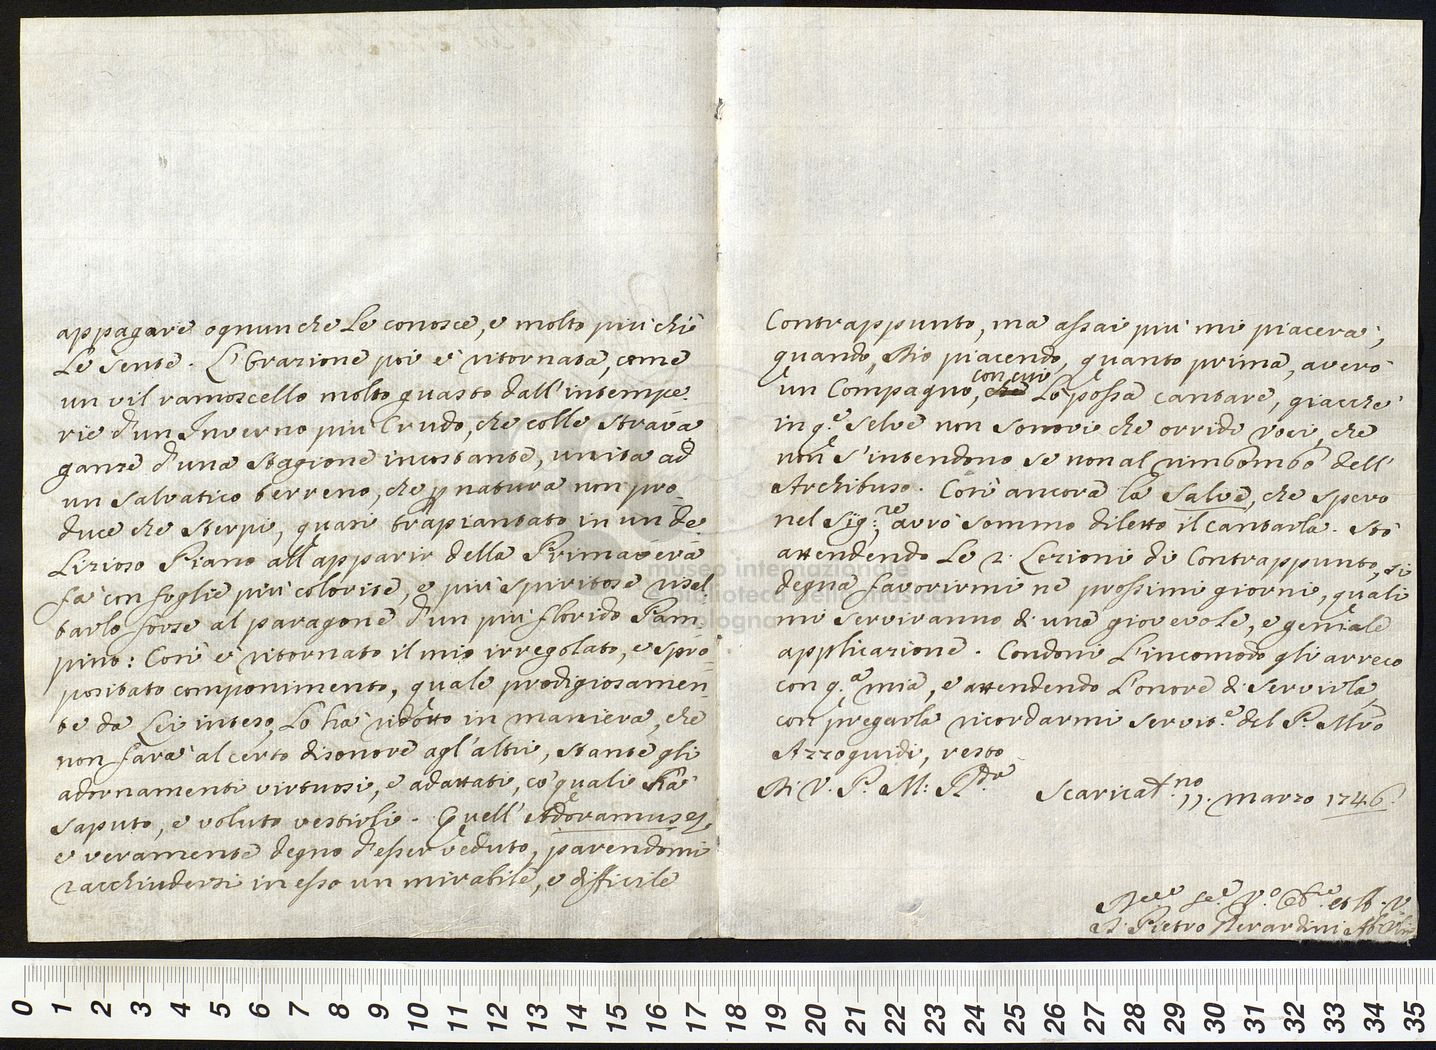 appagare ognun che Le conosce, e molto più chi
Le sente. L'Orazione poi è ritornata, come
un vil ramoscello molto guasto dall'intempe
rie d'un Inverno più Crudo, che colle strava
ganze d'una Stagione incostante, unita ad
un salvatico terreno, che p natura non pro
duce che sterpi, quasi trapiantato in un de
Lizioso Piano all'apparir della Primavera
fà con foglie più colorite, e più spiritose risal
tarlo forse al paragone d'un più florido Pam
pino: Così è ritornato il mio irregolato, e spro
positato componimento, quale prodigiosamen
te da Lei inteso, Lo hà ridotto in maniera, che
non farà al certo disonore agl'altri, stante gli
adornamenti virtuosi, e adattati, co' quali hà
saputo, e voluto vestirli. Quell'Adoramus ej,
è veramente degno d'esser veduto, parendomi
racchiudersi in esso un mirabile, e difficile
Contrappunto, ma assai più mi piacerà,
quando, Dio piacendo, quanto prima, averò
con cui
un Compagno, che Lo possa cantare, giacchè
in q.e selve non sonovi che orride voci, che
non s'intendono se non al rimbombo dell'
Archibuso. Così ancora la Salve, che spero
nel Sig:re avrò sommo diletto il cantarla. Stò
attendendo Le 2 Lezioni di Contrappunto, si
degna favorirmi ne prossimi giorni, quali
mi serviranno di una giovevole, e geniale
applicazione. Condoni L'incomodo gli arreco
con q.a mia, e attendendo L'onore di servirla,
con pregarla ricordarmi servit.e del P. Mro
Azzoguidi, resto
Di V. P. M: R.da
Scaricat.no 11. Marzo 1746.
D. Pietro Berardini